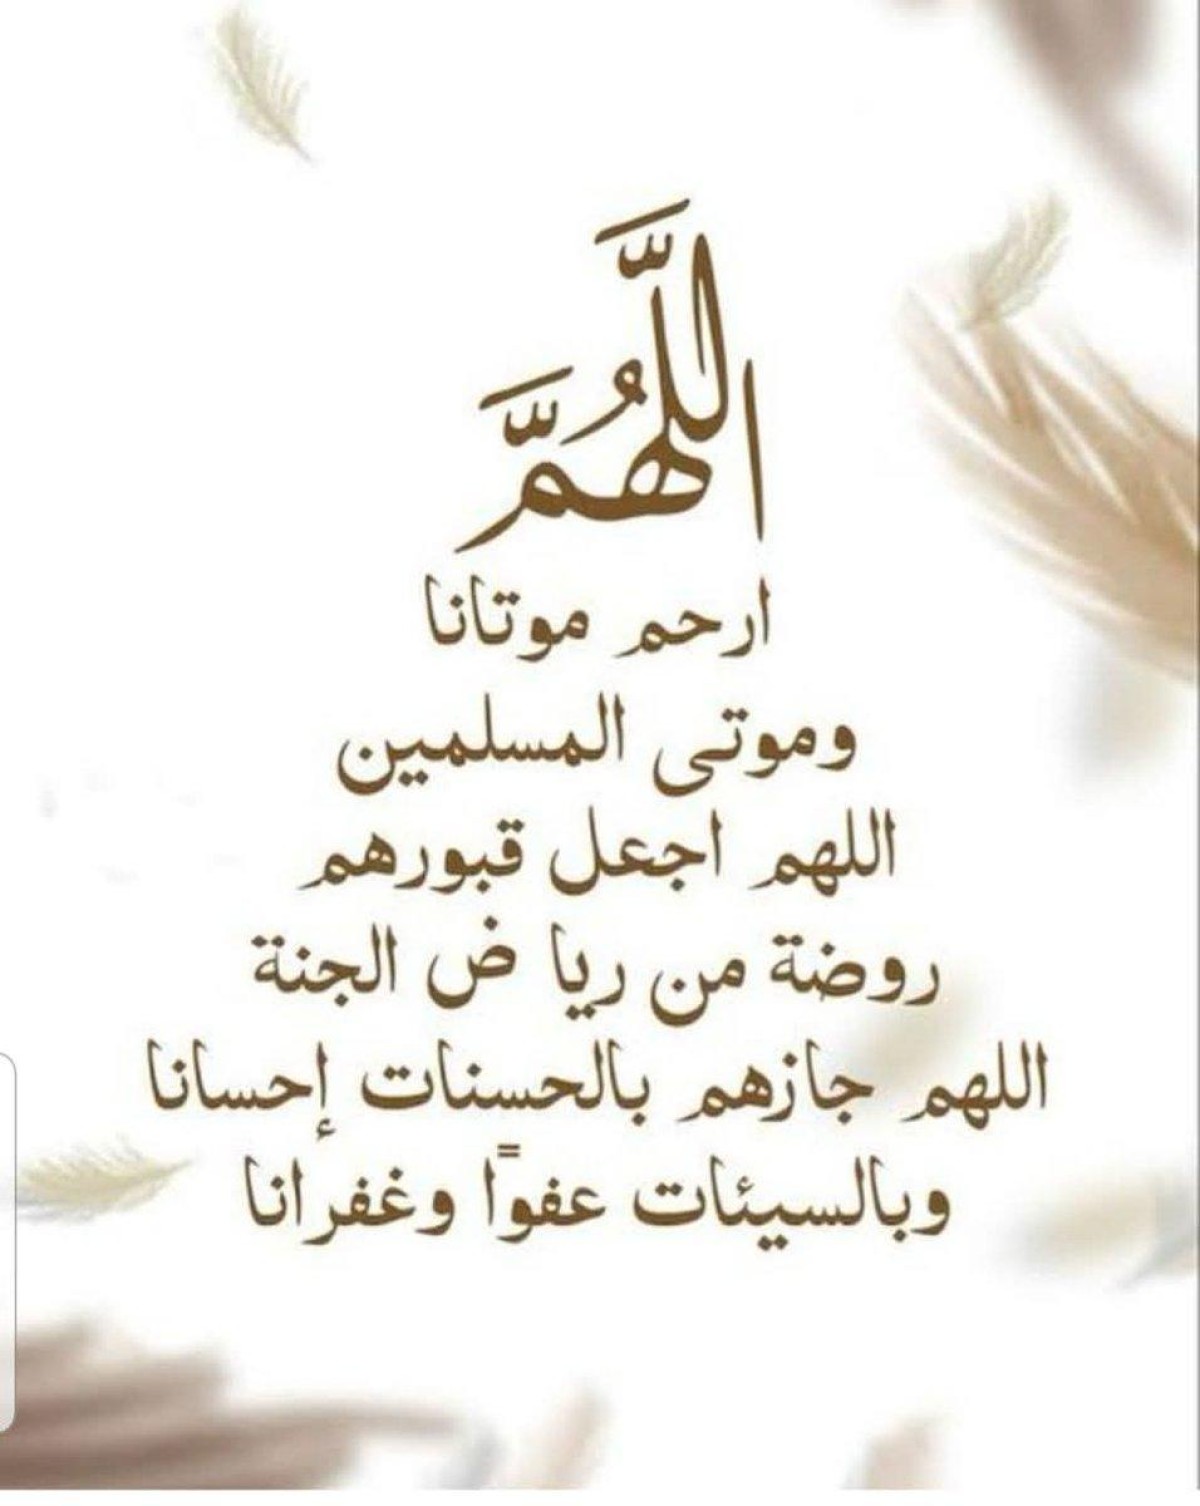 اللَّهُمَّ
ارحم موتانا
وموتى المسلمين
اللهم اجعل قبورهم
روضة من ريا ض الجنة
اللهم جازهم بالحسنات إحسانا
وبالسيئات عفوًا وغفرانا